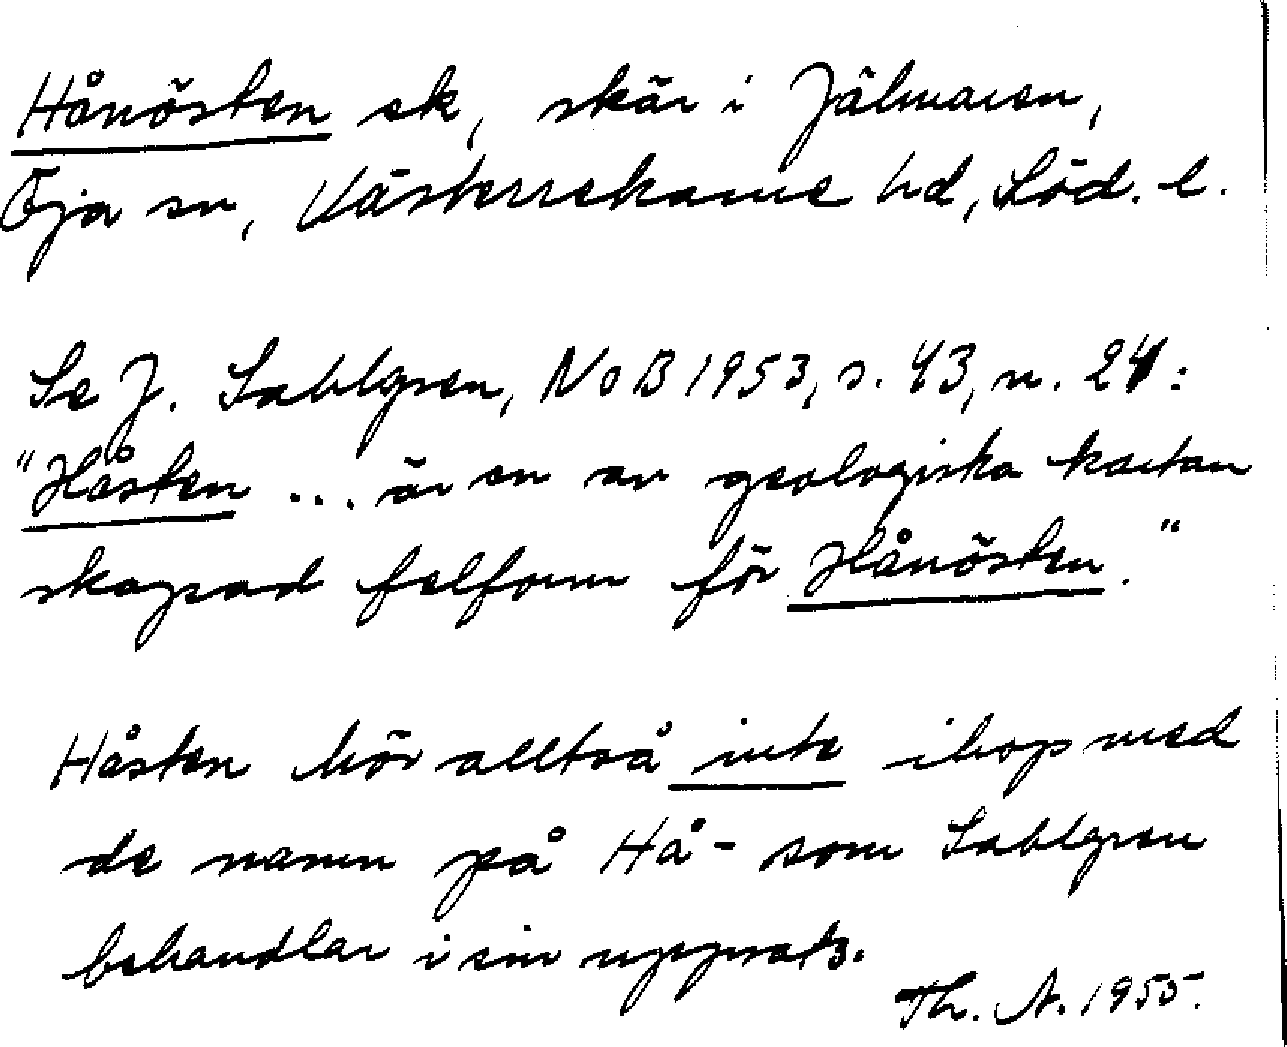 Hånösten ek, skär i Jälmaren,
Öja sn, Västerrekarne hd, Söd. l.
Se J. Sahlgren, NoB 1953, s. 43, n. 24:
"Håsten ... är en av geologiska kartan
skapad felform för Hånösten."
Håsten hör alltså inte ihop med
de namn på Hå- som Sahlgren
behandlar i sin uppsats.
Th. A. 1955.